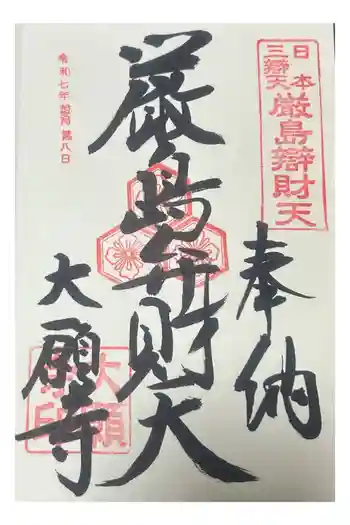 奉納
日本
三辯天
厳島辯財天
厳島弁財天
大願寺
大願
寺印
令和七年葉月第八日